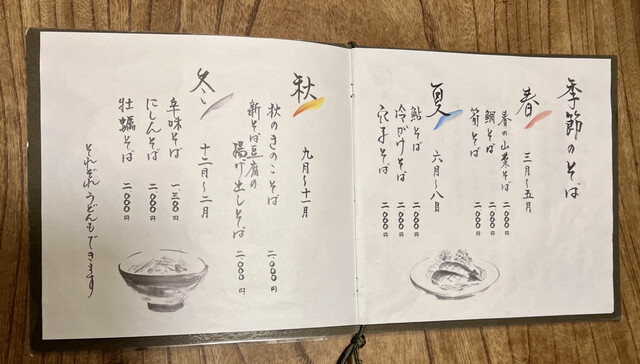 季節のそば
春
三月〜五月
春の山菜そば 二〇〇〇円
鯛そば 二〇〇〇円
筍そば 二〇〇〇円
夏
六月〜八月
鮎そば 二〇〇〇円
冷がけそば 二〇〇〇円
穴子そば 二〇〇〇円
秋
九月〜十一月
秋のきのこそば 二〇〇〇円
新そば豆腐の
揚げ出しそば 二〇〇〇円
冬
十二月〜二月
辛味そば 一三〇〇円
にしんそば 二〇〇〇円
牡蠣そば 二〇〇〇円
それぞれうどんもできます